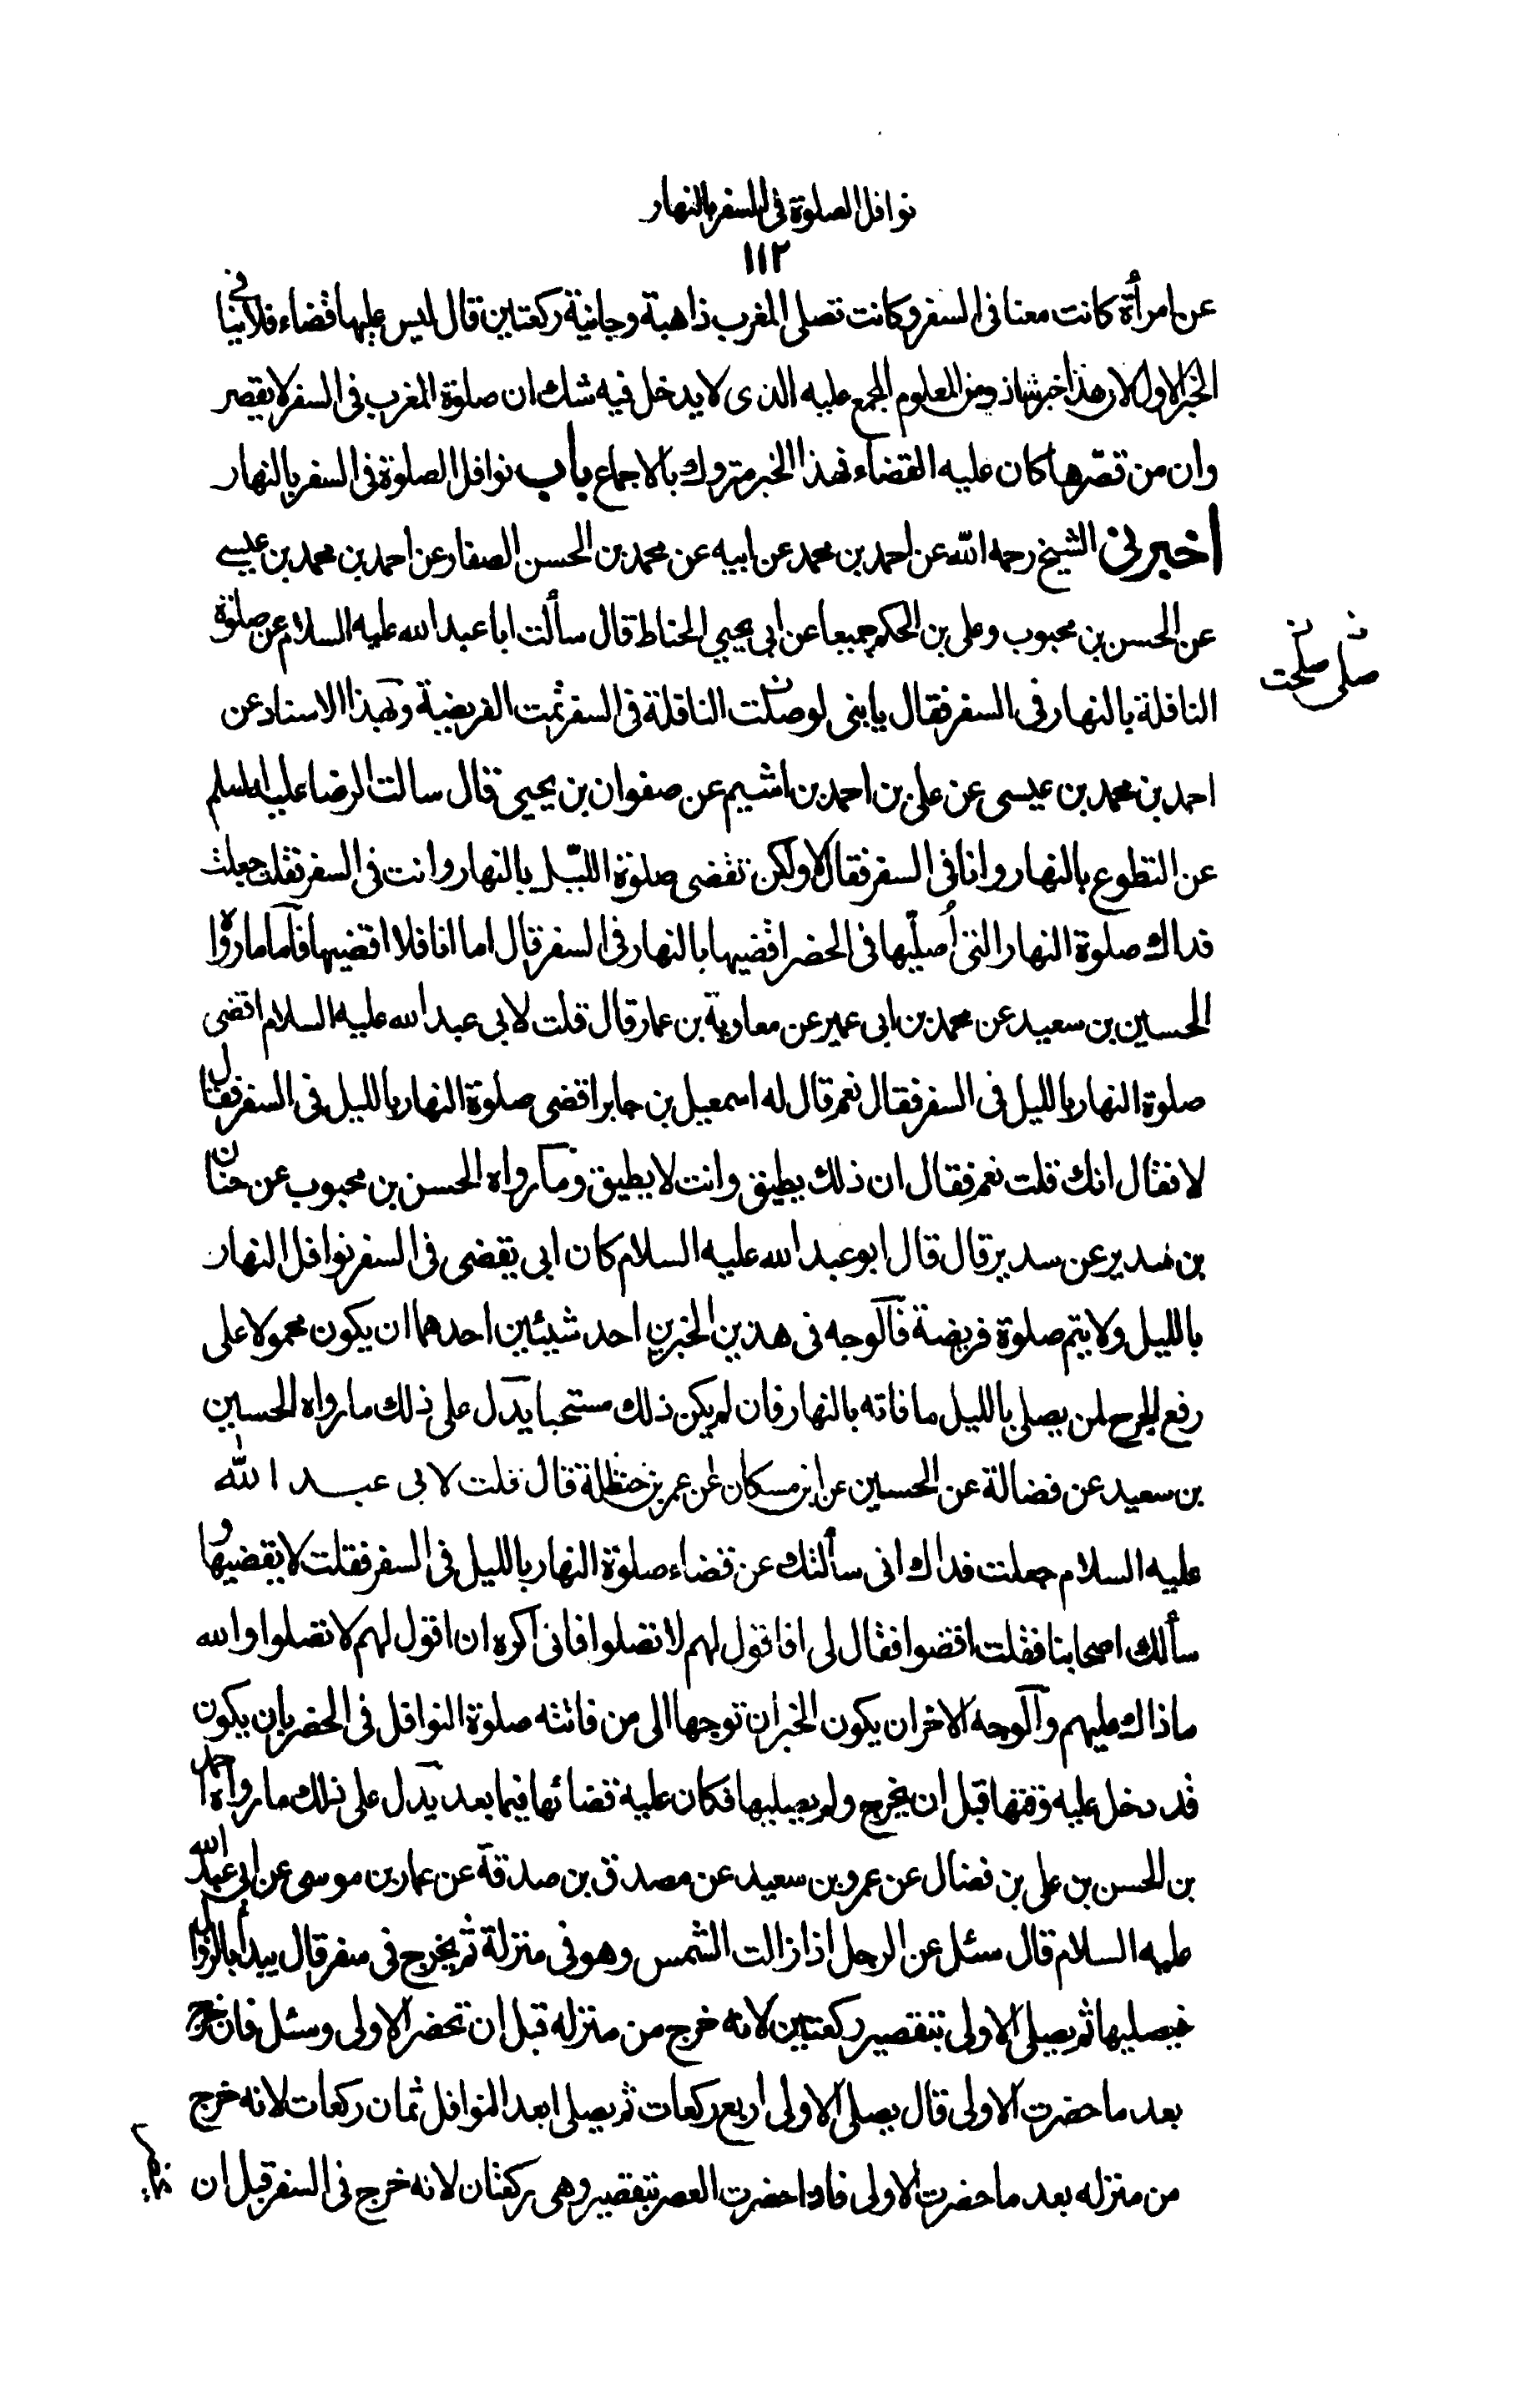 نوافل الصلوة فى السفر بالنهار
١١٢
عن امرأة كانت معنا فى السفر وكانت تصلى المغرب ذاهبة وجائية ركعتين قال ليس عليها قضاء فلا ينافى
الخبر الاول لان هذا خبر شاذ ومن المعلوم المجمع عليه الذى لا يدخل فيه شك ان صلوة المغرب فى السفر لا يقصر
وان من قصّرها كان عليه القضاء فهذا الخبر متروك بالاجماع باب نوافل الصلوة فى السفر بالنهار
اخبرنى الشيخ رحمه الله عن احمد بن محمد عن ابيه عن محمد بن الحسن الصفار عن احمد بن محمد بن عيسى
عن الحسن بن محبوب وعلى بن الحكم جميعا عن ابى يحيى الحناط قال سألت ابا عبد الله عليه السلام عن صلوة
صلى صلحت
النافلة بالنهار فى السفر فقال يا بنى لو صلحت النافلة فى السفر تمت الفريضة وبهذا الاسناد عن
احمد بن محمد بن عيسى عن على بن احمد بن اشيم عن صفوان بن يحيى قال سالت الرضا عليه السلم
عن التطوع بالنهار وانا فى السفر فقال لا ولكن تقضى صلوة الليل بالنهار وانت فى السفر فقلت جعلت
فداك صلوة النهار التى أصلّيها فى الحضر اقضيها بالنهار فى السفر قال اما انا فلا اقضيها فآما ما رواه
الحسين بن سعيد عن محمد بن ابى عمير عن معاوية بن عمار قال قلت لابى عبد الله عليه السلام اقضى
صلوة النهار بالليل فى السفر فقال نعم قال له اسمعيل بن جابر اقضى صلوة النهار بالليل فى السفر فقال
لا فقال انك قلت نعم فقال ان ذلك يطيق وانت لا يطيق ومآ رواه الحسن بن محبوب عن حنان
بن سدير عن سدير قال قال ابو عبد الله عليه السلام كان ابى يقضى فى السفر نوافل النهار
بالليل ولا يتم صلوة فريضة فآلوجه فى هذين الخبرين احد شيئين احدهما ان يكون محمولا على
رفع الحرج لمن يصلى بالليل ما فاته بالنهار فان لم يكن ذلك مستحبا يدل على ذلك ما رواه الحسين
بن سعيد عن فضالة عن الحسين عن ابن مسكان عن عمر بن حنظلة قال قلت لابى عبد الله
عليه السلام جعلت فداك انى سألتك عن قضاء صلوة النهار بالليل فى السفر فقلت لا يقضيها و
سألك اصحابنا فقلت اقضوا فقال لى افاقول لهم لا تصلوا فانى اكره ان اقول لهم لا تصلوا والله
ما ذاك عليهم وآلوجه الاخر ان يكون الخبران توجها الى من فاتته صلوة النوافل فى الحضر بان يكون
قد دخل عليه وقتها قبل ان يخرج ولم يصليها فكان عليه قضائها فيما بعد يدل على ذلك ما رواه احمد
بن الحسن بن على بن فضال عن عمرو بن سعيد عن مصدق بن صدقة عن عمار بن موسى عن ابى عبد الله
عليه السلام قال سئل عن الرجل اذا زالت الشمس وهو فى منزلة ثم يخرج فى سفر قال يبدأ بالزوال
فيصليها ثم يصلى الاولى بتقصير ركعتين لانه خرج من منزله قبل ان تحضر الاولى وسئل فان خرج
بعد ما حضرت الاولى قال يصلى الاولى اربع ركعات ثم يصلى بعد النوافل ثمان ركعات لانه خرج
من منزله بعد ما حضرت الاولى فاذا حضرت العصر بتقصير وهى ركعتان لانه خرج فى السفر قبل ان